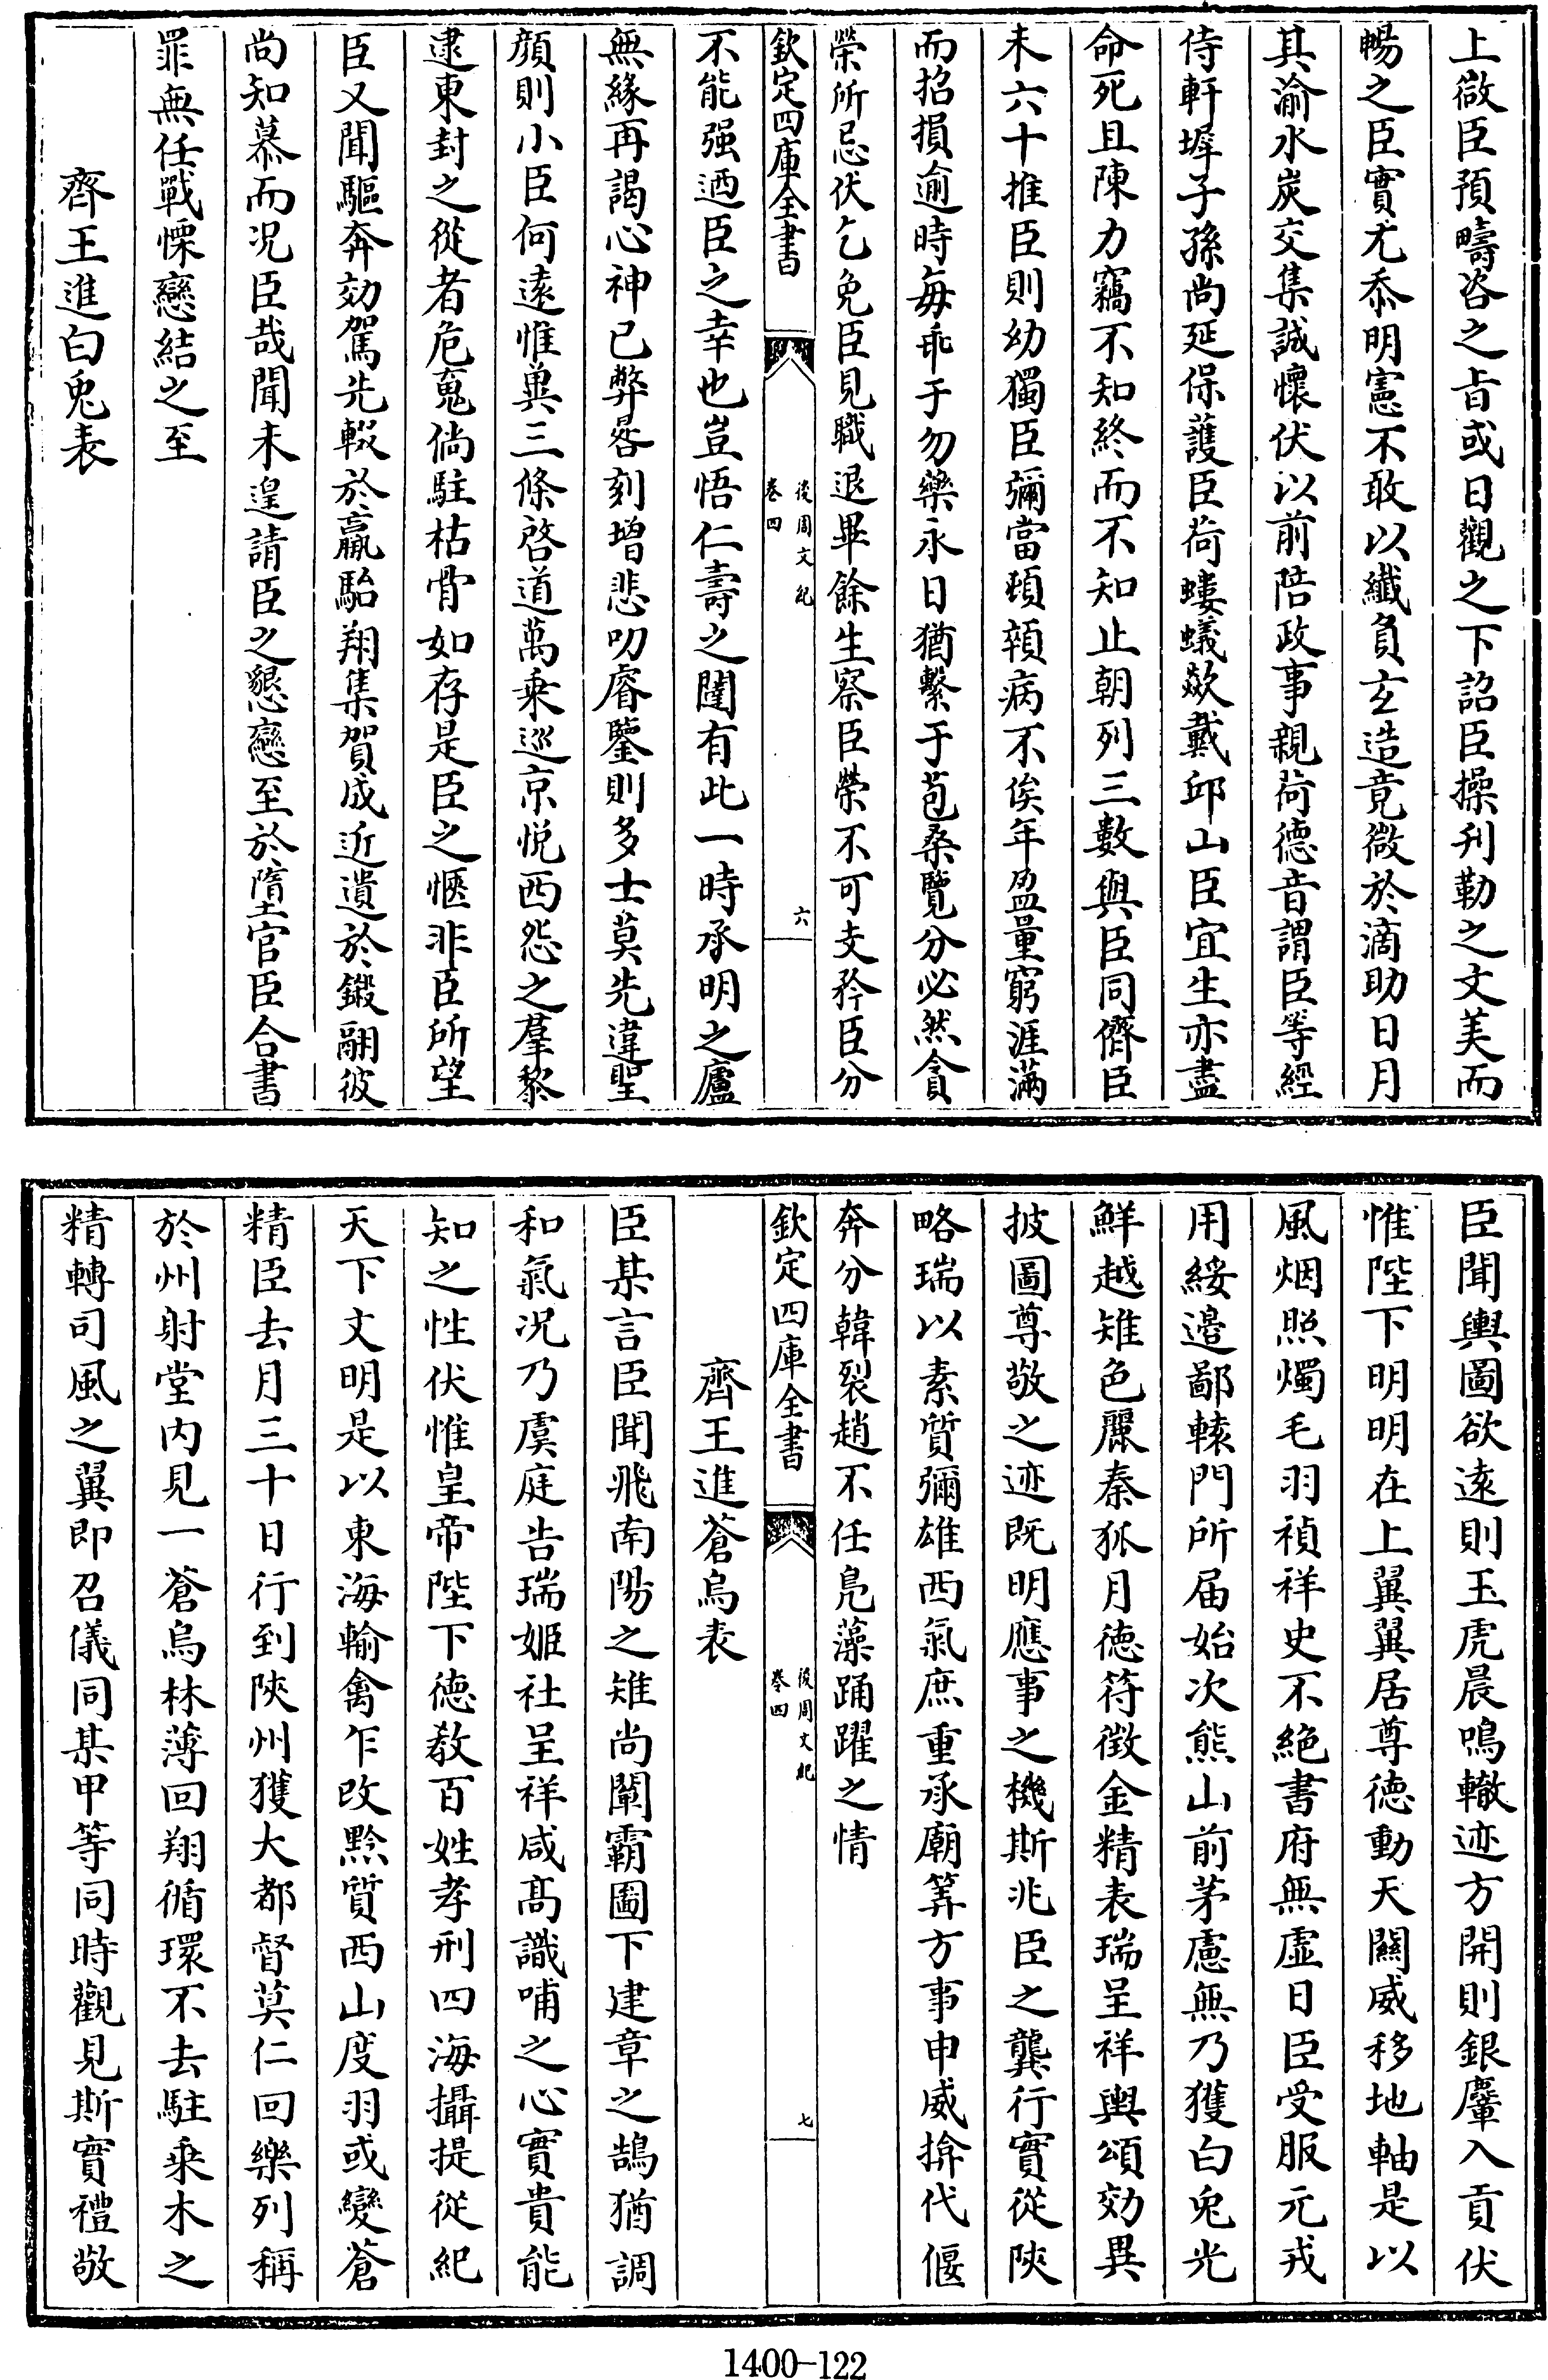 上啟臣預疇咨之㫖或日觀之下詔臣操刋勒之文美而
暢之臣實尤忝明憲不敢以纎負𤣥造竟微於滴助日月
其渝水炭交集誠懷伏以前陪政事親荷德音謂臣等經
侍軒墀子孫尚延保䕶臣荷螻蟻歘戴邱山臣宜生亦盡
命死且陳力竊不知終而不知止朝列三數與臣同儕臣
未六十推臣則幼獨臣彌當頓顇病不俟年盈量窮涯滿
而招損逾時每乖于勿藥永日猶繫于苞桑覽分必然貪
榮所忌伏乞免臣見職退畢餘生察臣榮不可支矜臣分
欽定四庫全書
後周文紀
卷四
六
不能强迺臣之幸也豈悟仁壽之闥有此一時承明之廬
無緣再謁心神已弊晷刻增悲叨睿鑒則多士莫先違聖
顔則小臣何逺惟兾三條啓道萬乘巡京悦西怨之羣黎
逮東封之從者危䰟倘駐枯骨如存是臣之愜非臣所望
臣又聞驅奔効駕先輟於羸駘翔集賀成近遺於鎩翮彼
尚知慕而况臣哉聞未遑請臣之懇戀至於墮官臣合書
罪無任戰慄戀結之至
齊王進白兎表
臣聞輿圖欲逺則玉虎晨鳴轍迹方開則銀麞入貢伏
惟陛下明明在上翼翼居尊徳動天關威移地軸是以
風烟照燭毛羽禎祥史不絶書府無虛日臣受服元戎
用綏邉鄙轅門所届始次熊山前茅慮無乃獲白兎光
鮮越雉色麗秦狐月徳符徴金精表瑞呈祥輿頌効異
披圖尊敬之迹既明應事之機斯兆臣之龔行實從陜
略瑞以素質彌雄西氣庶重承廟筭方事申威揜代偃
奔分韓裂趙不任鳬藻踊躍之情
欽定四庫全書
後周文紀
卷四
七
齊王進蒼烏表
臣某言臣聞飛南陽之雉尚闡霸圖下建章之鵠猶調
和氣况乃虞庭告瑞姬社呈祥咸髙識哺之心實貴能
知之性伏惟皇帝陛下徳教百姓孝刑四海攝提從紀
天下文明是以東海輸禽乍改黔質西山度羽或變蒼
精臣去月三十日行到陜州獲大都督莫仁回樂列稱
於州射堂内見一蒼烏林薄回翔循環不去駐乘木之
精轉司風之翼即召儀同某甲等同時觀見斯實禮敬
1400-122